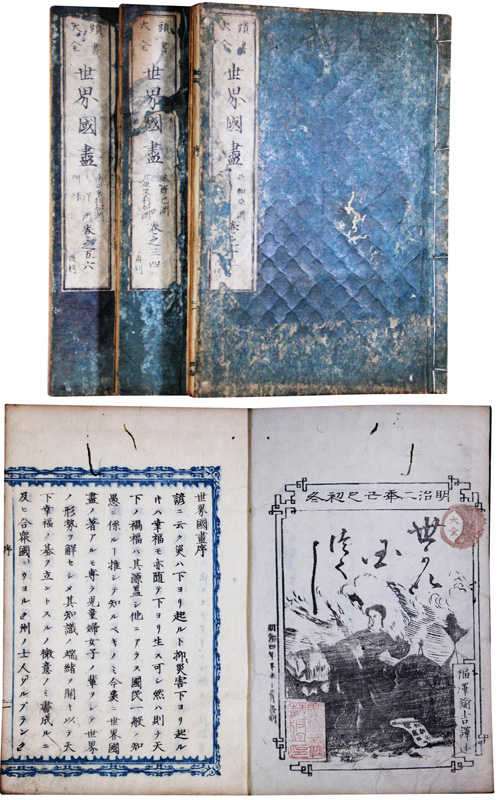 頭書
大全
世界國盡
頭書
大全
世界國盡
卷之三四
頭書
大全
世界國盡
大洋洲
卷之五六
明治二年己巳初冬
大全
世界
国
つくし
福澤諭吉譯述
世界國盡序
諺ニ云ク災ハ下ヨリ起ルト抑災害下ヨリ起ル
トキハ幸福モ亦随テ下ヨリ生ス可シ然ハ則チ天
下ノ禍福ハ其源盖シ他ニアラス國民一般ノ知
愚ニ係ルヿ推シテ知ルベキノミ今茲ニ世界國
盡ノ著アルモ専ラ児童婦女子ノ輩ヲシテ世界
ノ形勢ヲ解セシメ其知識ノ端緒ヲ開キ以テ天
下幸福ノ基ヲ立ントスルノ微意ノミ書成ルニ
及ヒ合衆國ニウヨルク州ノ士人
序